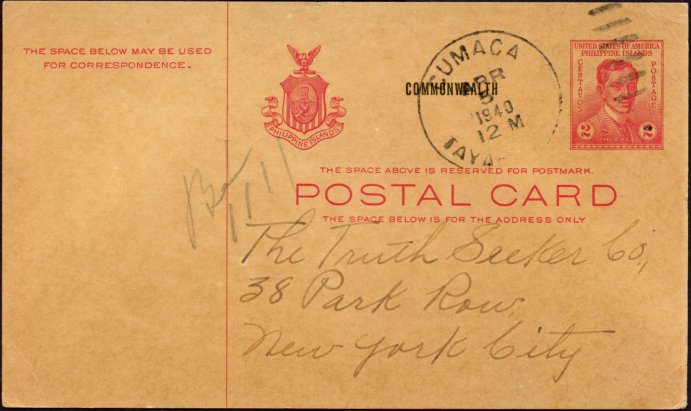 THE SPACE BELOW MAY BE USED
FOR CORRESPONDENCE.
PHILIPPINE ISLANDS
COMMONWEALTH
GUMACA
APR
1940
12 M
TAYABA
UNITED STATES OF AMERICA
PHILIPPINE ISLANDS
CENTAVOS
POSTAGE
2
2
THE SPACE ABOVE IS RESERVED FOR POSTMARK.
POSTAL CARD
THE SPACE BELOW IS FOR THE ADDRESS ONLY
The Truth Seeker Co.,
38 Park Row,
New York City